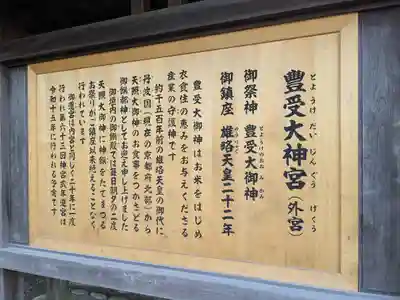 豊受大神宮（外宮）
とようけだいじんぐう　げくう
御祭神　豊受大御神
とようけのおおみかみ
御鎮座　雄略天皇二十二年
豊受大御神はお米をはじめ
衣食住の恵みをお与えくださる
産業の守護神です
約千五百年前の雄略天皇の御代に
丹波国（現在の京都府北部）から
天照大御神のお食事をつかさどる
御饌都神としてお迎え申し上げました
御垣内の御饌殿では毎日朝夕の二度
天照大御神に神饌をたてまつる
お祭りがご鎮座以来絶えることなく
行われています
御遷宮は内宮と同じく二十年に一度
行われ第六十三回神宮式年遷宮は
令和十五年に行われる予定です